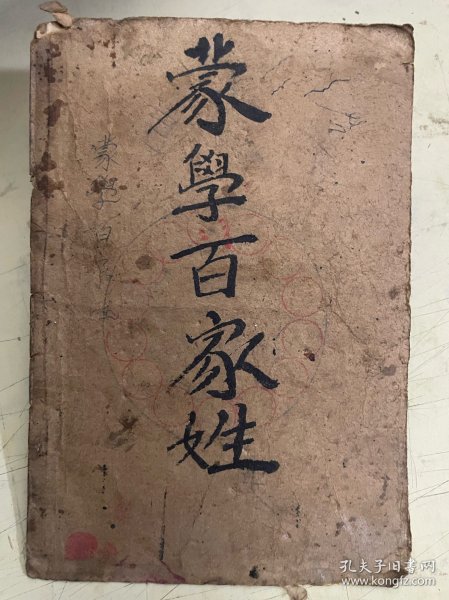 蒙學百家姓
蒙學百家姓
孔夫子旧书网
www.kongfz.com